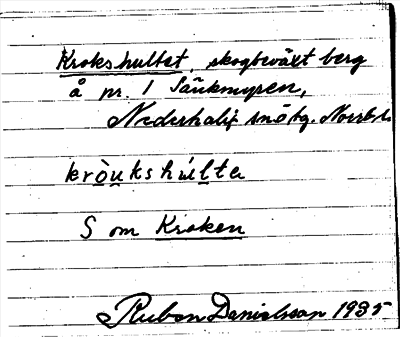 Krokshultet, skogbeväxt berg
å nr. 1 Säukmyren,
Nederkalix snötg. Norrb. l.
kròukshúlta
S om Kroken
Ruben Danielsson 1935